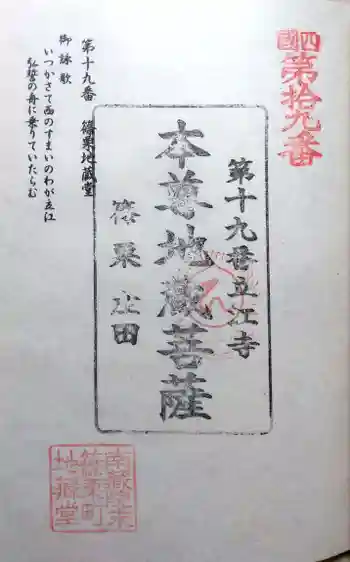 四国
第拾九番
第十九番立江寺
本尊地蔵菩薩
篠栗山田
第十九番 篠栗地蔵堂
御詠歌
いつかさて西のすまいのわが立江
弘誓の舟に乗りていたらむ
篠栗町
地蔵堂